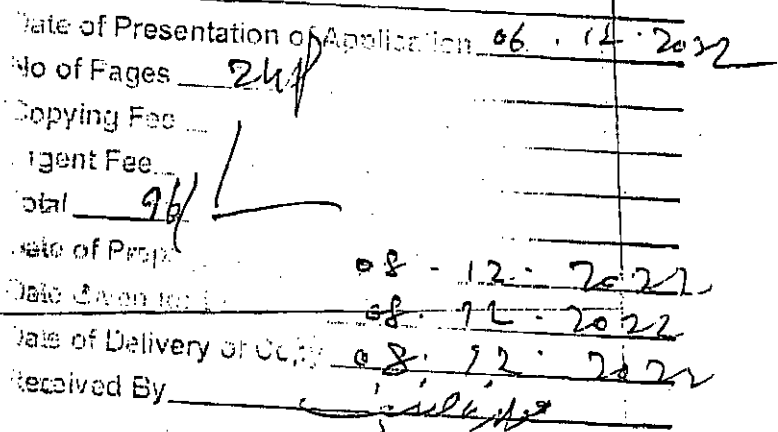 Date of Presentation of Application 06.12.2022
No of Pages 24p
Copying Fee
Urgent Fee
Total 96/-
Date of Prep
08-12-2022
Date Given 08.12.2022
Date of Delivery of Copy 08.12.2022
Received By